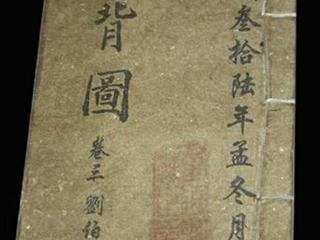 叁拾陸年孟冬月
背圖
卷三 劉伯